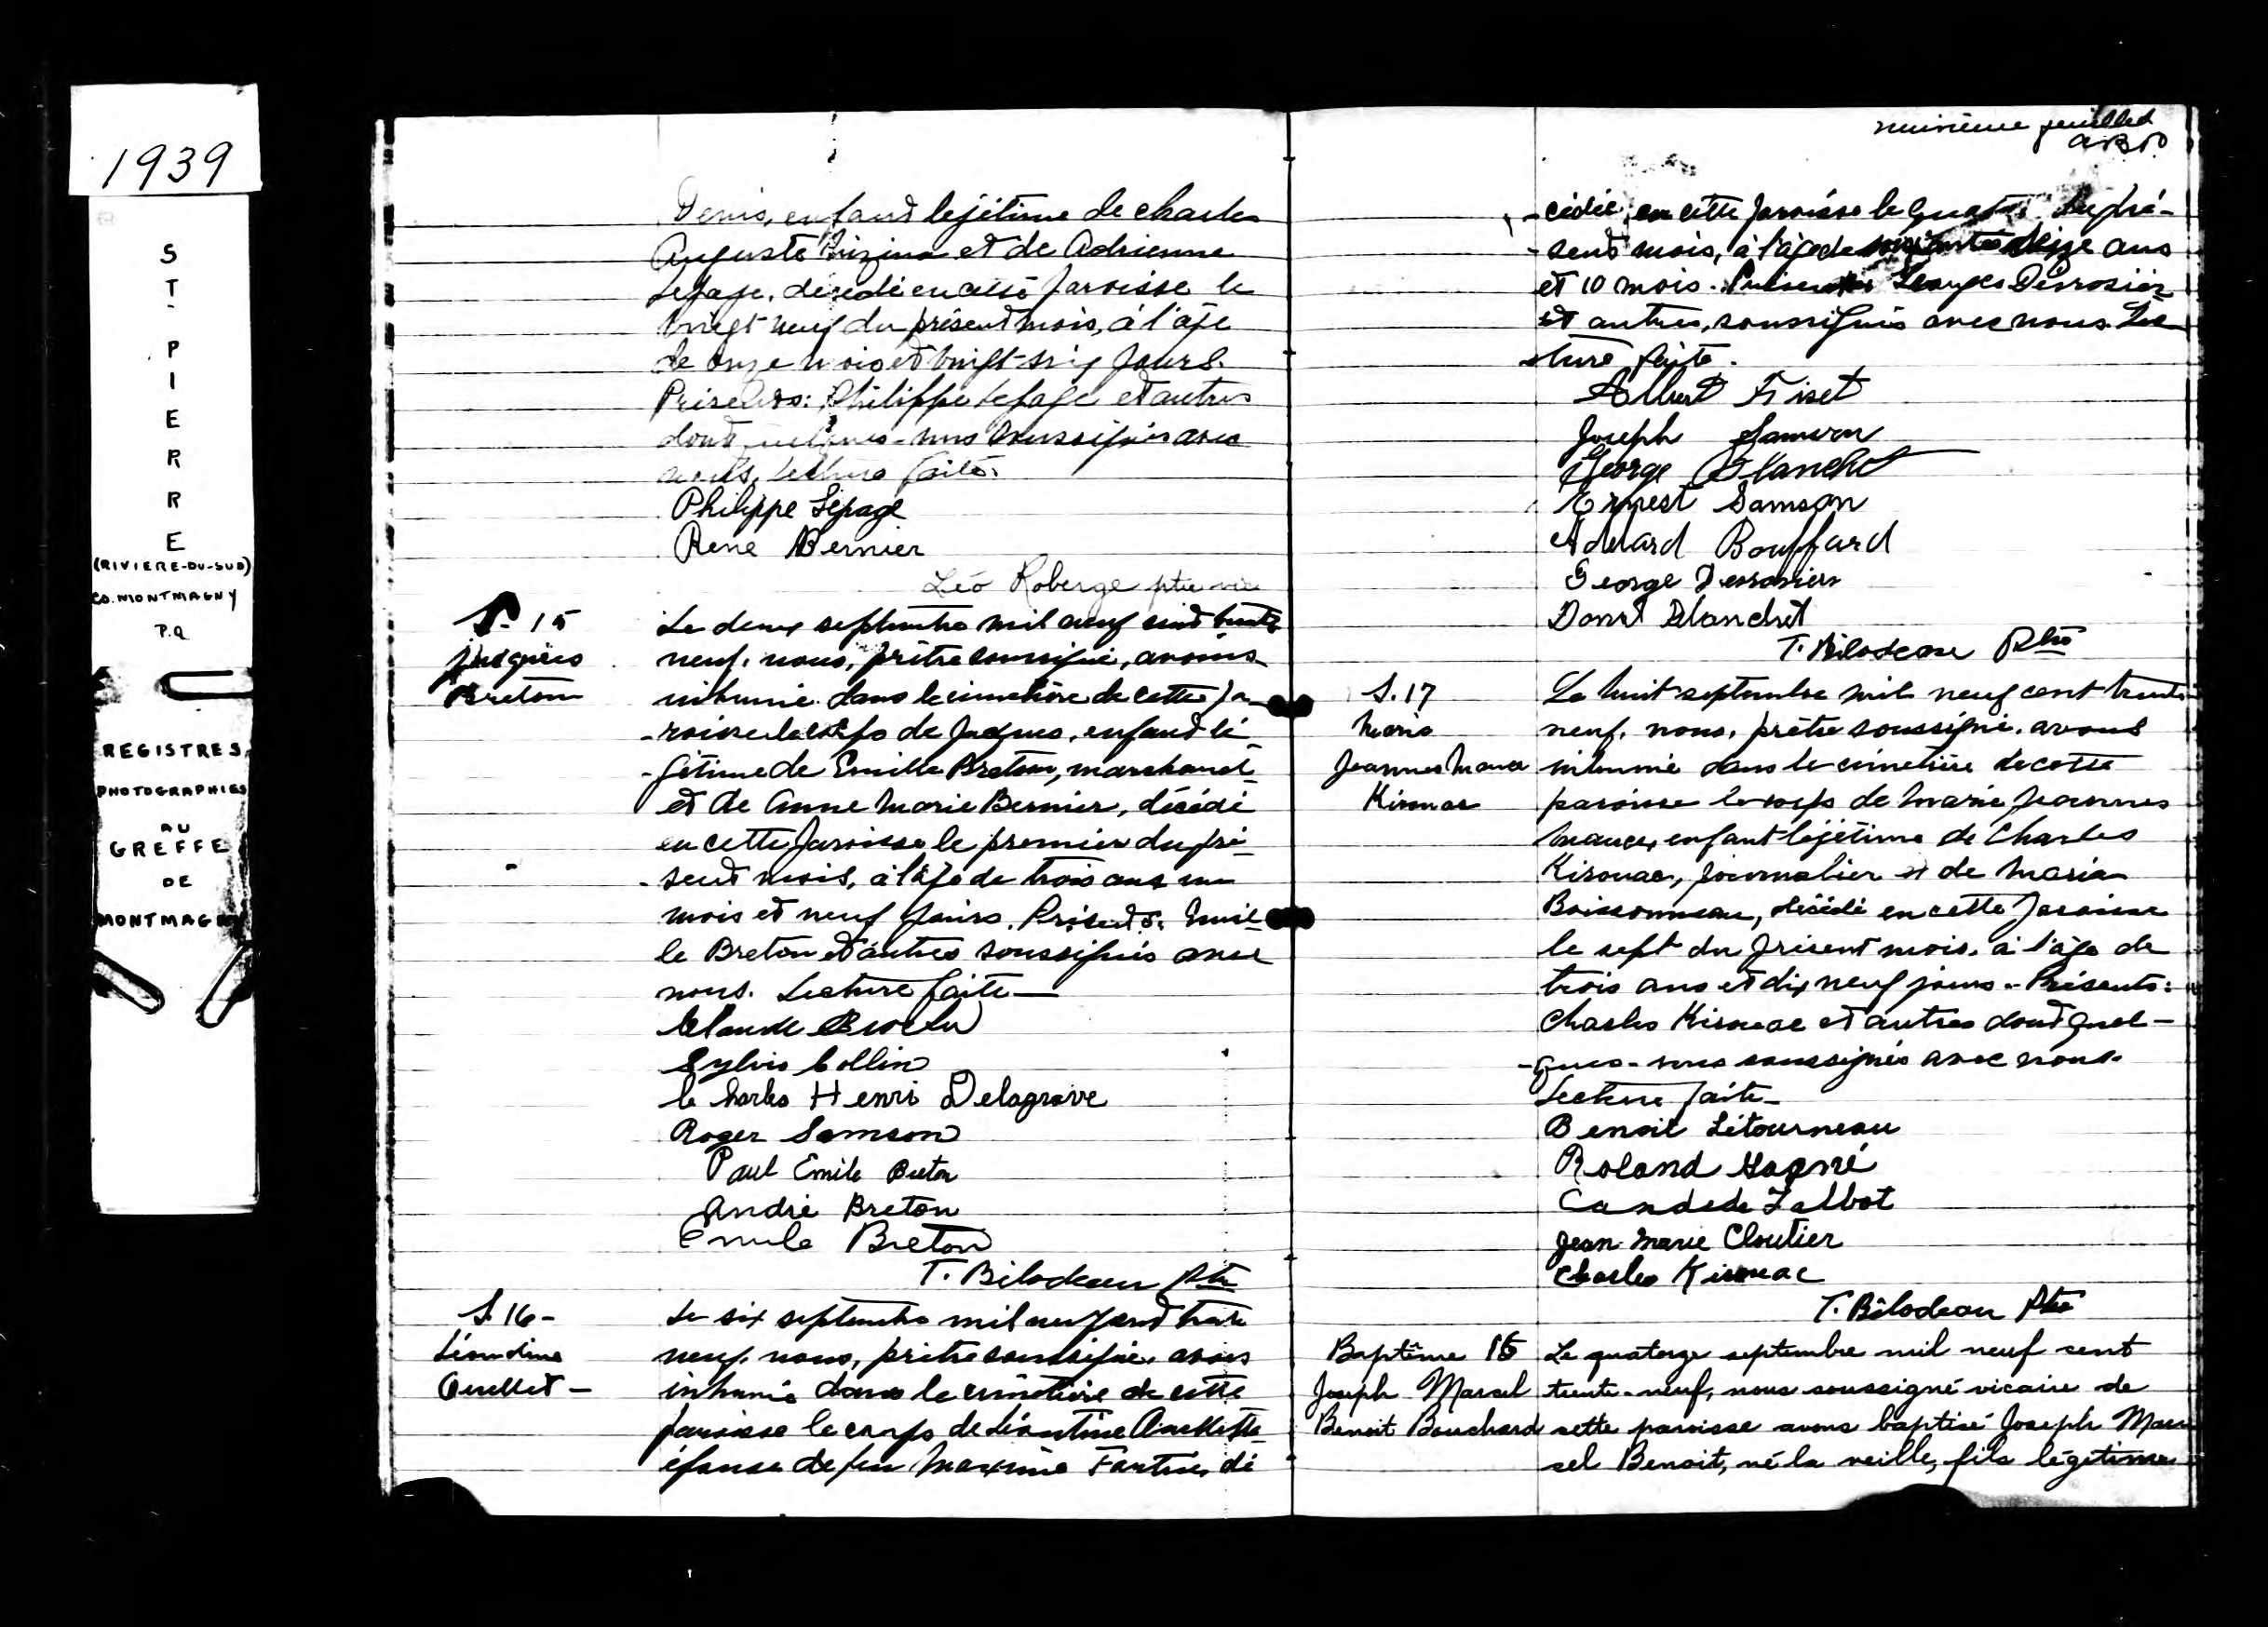 1939
ST-PIERRE
(RIVIERE-DU-SUD)
CO. MONTMAGNY
P.Q
REGISTRES
PHOTOGRAPHIES
AU
GREFFE
DE
MONTMAGNY
Denis, enfant légitime de Charles
Auguste et de Adrienne
Lepage, décédé en cette paroisse le
vingt neuf du présent mois, à l'âge
de onze mois et vingt-six jours.
Présents: Philippe Lepage et autres
dont quelques-uns soussignés avec
nous. Lecture faite.
Philippe Lepage
René Bernier
Léo Roberge ptre vic
S. 15
Jacques
Breton
Le deux septembre mil neuf cent trente
neuf, nous, prêtre soussigné, avons
inhumé dans le cimetière de cette pa-
-roisse le corps de Jacques, enfant lé
-gitime de Emile Breton, marchand
et de Anne Marie Bernier, décédé
en cette paroisse le premier du pré-
-sent mois, à l'âge de trois ans un
mois et neuf jours. Présents: Emi-
le Breton et autres soussignés avec
nous. Lecture faite—
Claude
Sylvio Collin
Charles Henri Delagrave
Roger Samson
Paul Emile Breton
André Breton
Emile Breton
T. Bilodeau Ptre
S. 16-
Ouellet-
Le six septembre mil neuf cent trente
neuf, nous, prêtre soussigné, avons
inhumé dans le cimetière de cette
paroisse le corps de Léontine
épouse de feu Maxime Fortier, dé
neuvième feuillet
-cédée en cette paroisse le quatre du pré-
-sent mois, à l'âge de ans
et 10 mois. Présents Georges Desrosiers
et autres, soussignés avec nous. Lec
-ture faite.
Albert Fiset
Joseph Samson
George Blanchet
Ernest Samson
Adelard Bouffard
George Desrosiers
Donat Blanchet
T. Bilodeau Ptre
S. 17
Marie
Jeanne Mance
Kirouac
Le huit septembre mil neuf cent trente
neuf, nous, prêtre soussigné, avons
inhumé dans le cimetière de cette
paroisse le corps de Marie Jeanne
Mance, enfant légitime de Charles
Kirouac, journalier et de Maria
Boissonneau, décédé en cette paroisse
le sept du présent mois, à l'âge de
trois ans et dix neuf jours.- Présents:
Charles Kirouac et autres dont quel-
-ques-uns soussignés avec nous.
Lecture faite-
Benoit Létourneau
Roland Gagné
Candide Talbot
Jean-Marie Cloutier
Charles Kirouac
T. Bilodeau Ptre
Baptême 15
Joseph Marcel
Benoit Bouchard
Le quatorze septembre mil neuf cent
trente-neuf, nous soussigné vicaire de
cette paroisse avons baptisé Joseph Mar
cel Benoit, né la veille, fils légitime